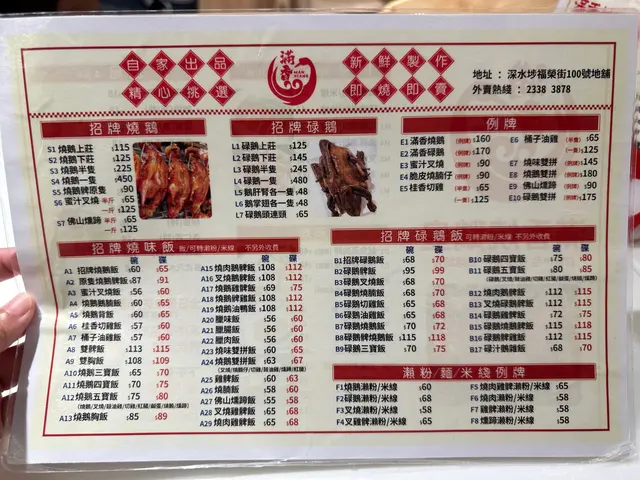 自家出品
精心挑選
滿香
MAN HEUNG
新鮮製作
即燒即賣
地址 : 深水埗福榮街100號地舖
外賣熱綫 : 2338 3878
招牌燒鵝
S1 燒鵝上莊 $115
S2 燒鵝下莊 $125
S3 燒鵝半隻 $225
S4 燒鵝一隻 $450
S5 燒鵝髀原隻 $90
S6 蜜汁叉燒 半斤 $65
一斤 $125
S7 佛山燻蹄 半斤 $65
一斤 $125
招牌碌鵝
L1 碌鵝上莊 $125
L2 碌鵝下莊 $145
L3 碌鵝半隻 $245
L4 碌鵝一隻 $480
L5 鵝肝腎各一隻 $48
L6 鵝掌翅各一隻 $48
L7 碌鵝頭連頸 $65
例牌
E1 滿香燒鵝 (例牌) $160
E2 滿香碌鵝 (例牌) $170
E3 蜜汁叉燒 (例牌) $90
E4 脆皮燒腩仔 (例牌) $90
E5 桂香切雞 (半隻) $65
(一隻) $125
E6 桶子油雞 (半隻) $65
(一隻) $125
E7 燒味雙拼 (例牌) $145
E8 燒鵝雙拼 (例牌) $180
E9 佛山燻蹄 (例牌) $90
E10 碌鵝雙拼 (例牌) $175
招牌燒味飯 飯/可轉瀨粉/米線 不另外收費
碗 碟
A1 招牌燒鵝飯 $60 $65
A2 原隻燒鵝髀飯 $87 $91
A3 蜜汁叉燒飯 $56 $60
A4 燒鵝鵝腩飯 $60 $65
A5 燒鵝背飯 $60 $65
A6 桂香切雞飯 $57 $60
A7 桶子油雞飯 $57 $60
A8 雙髀飯 $113 $115
A9 雙胸飯 $108 $109
A10 燒鵝三寶飯 $65 $70
A11 燒鵝四寶飯 $70 $75
A12 燒鵝五寶飯 $75 $80
A13 燒鵝胸飯 $85 $89
碗 碟
A15 燒肉鵝髀飯 $108 $112
A16 叉燒鵝髀飯 $108 $112
A17 燒鵝雞髀飯 $69 $75
A18 燒鵝髀雞飯 $108 $112
A19 燒鵝油鴨飯 $108 $112
A20 臘味飯 $56 $60
A21 臘腸飯 $56 $60
A22 臘肉飯 $56 $60
A23 燒味雙拼飯 $60 $65
A24 燒鵝雙拼飯 $63 $67
A25 雞髀飯 $60 $63
A26 燒腩飯 $58 $60
A27 佛山燻蹄飯 $55 $58
A28 叉燒雞髀飯 $65 $68
A29 燒肉雞髀飯 $65 $68
招牌碌鵝飯 可轉瀨粉/米線 不另外收費
碗 碟
B1 招牌碌鵝飯 $68 $70
B2 碌鵝髀飯 $95 $99
B3 碌鵝叉燒飯 $68 $70
B4 碌鵝燒腩飯 $68 $70
B5 碌鵝切雞飯 $65 $68
B6 碌鵝油雞飯 $65 $68
B7 碌鵝燒鵝飯 $68 $70
B8 碌鵝髀燒鵝飯 $115 $118
B9 碌鵝三寶飯 $70 $75
碗 碟
B10 碌鵝四寶飯 $75 $80
B11 碌鵝五寶飯 $80 $85
B12 燒肉鵝髀飯 $112 $115
B13 叉燒碌鵝髀飯 $112 $115
B14 碌鵝雞髀飯 $72 $75
B15 碌鵝髀燒鵝飯 $115 $118
B16 碌鵝髀雞飯 $112 $115
B17 $68 $70
瀨粉/麵/米綫例牌
F1 燒鵝瀨粉/米線 $60
F2 碌鵝瀨粉/米線 $68
F3 叉燒瀨粉/米線 $58
F4 叉雞髀瀨粉/米線 $65
F5 燒肉雞髀瀨粉/米線 $65
F6 燒肉瀨粉/米線 $58
F7 雞髀瀨粉/米線 $58
F8 燻蹄瀨粉/米線 $58